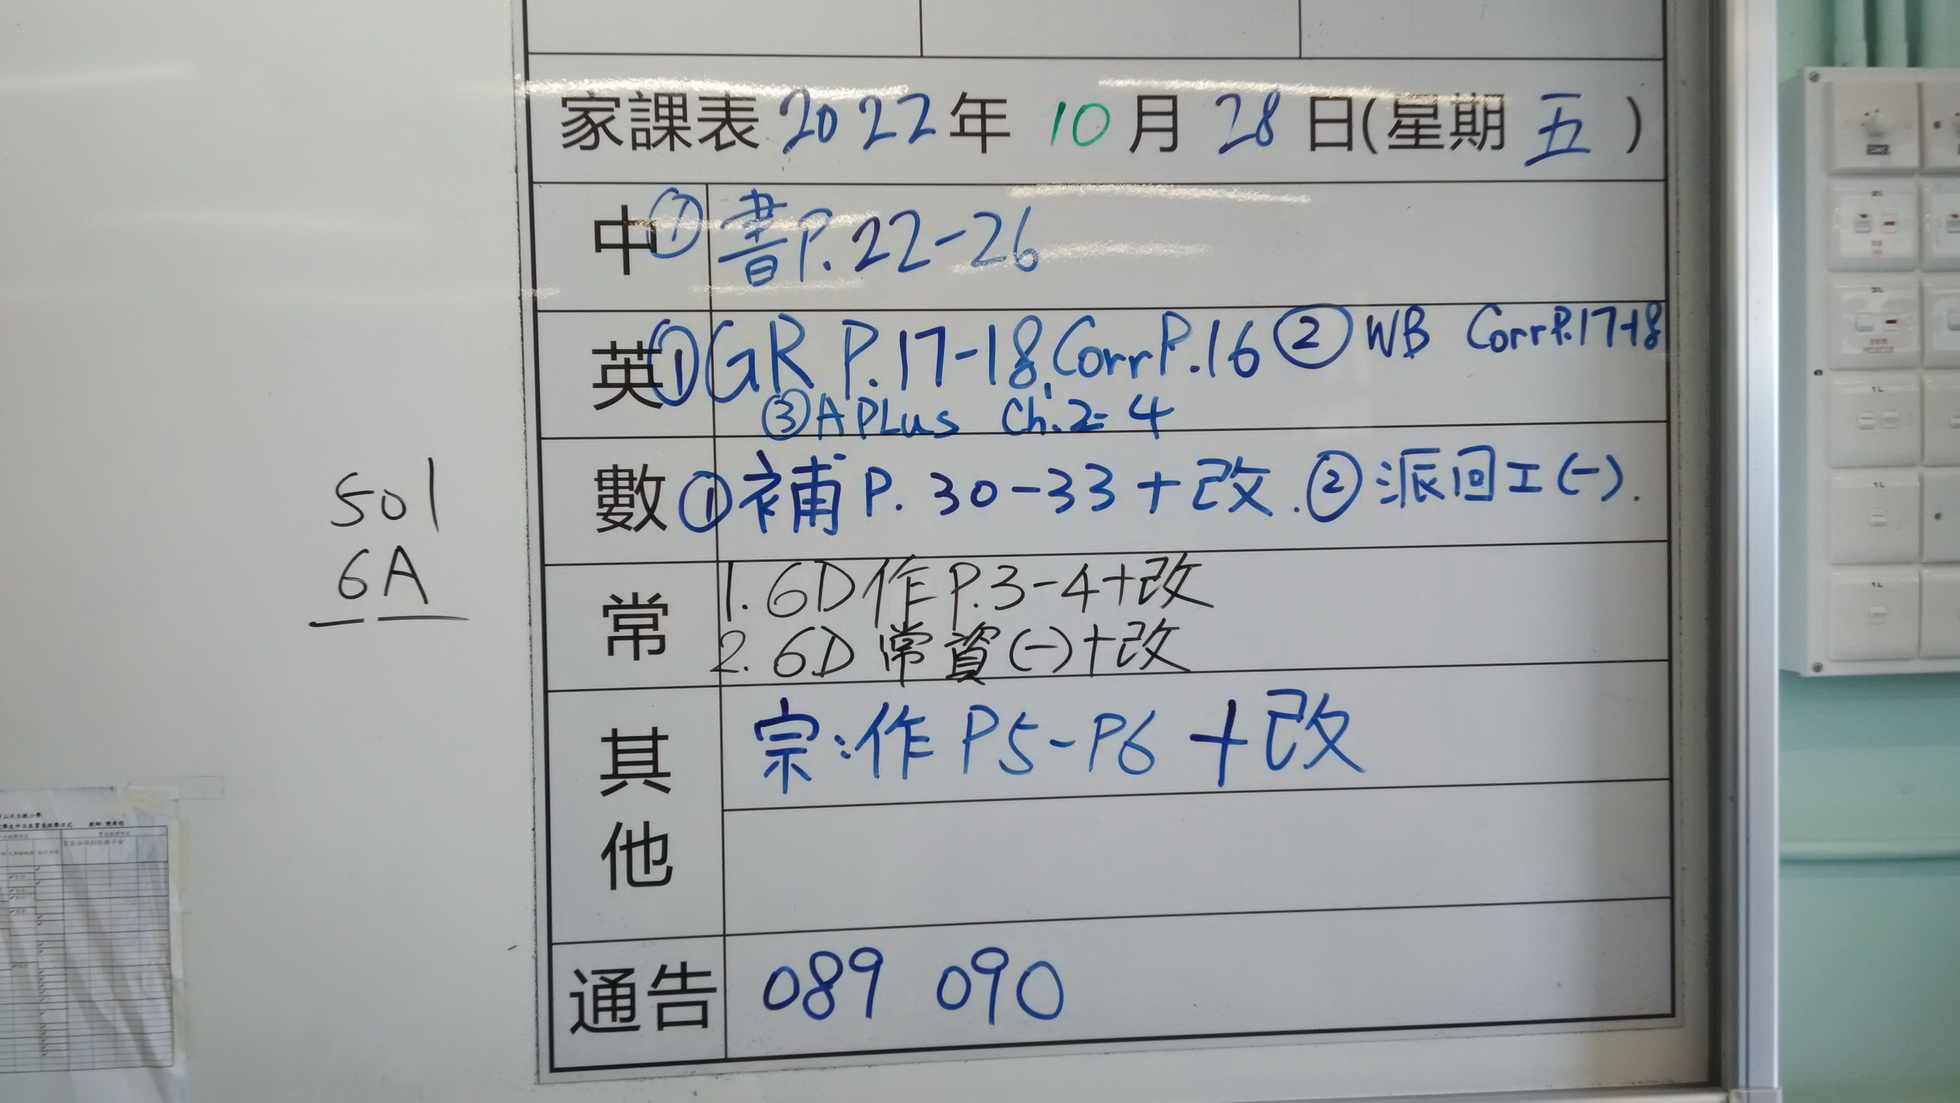 家課表 2022年 10月 28日(星期 五 )
中 ① 書P.22-26
英 ① GR P.17-18, Corr P.16 ② WB Corr P.17-18
③ A PLus Ch.2-4
數 ① 補 P. 30-33+改. ② 派回工(一).
常 1. 6D作 P.3-4+改
2. 6D 常資(一)+改
其他 宗:作 P5-P6 +改
通告 089 090
501
6A